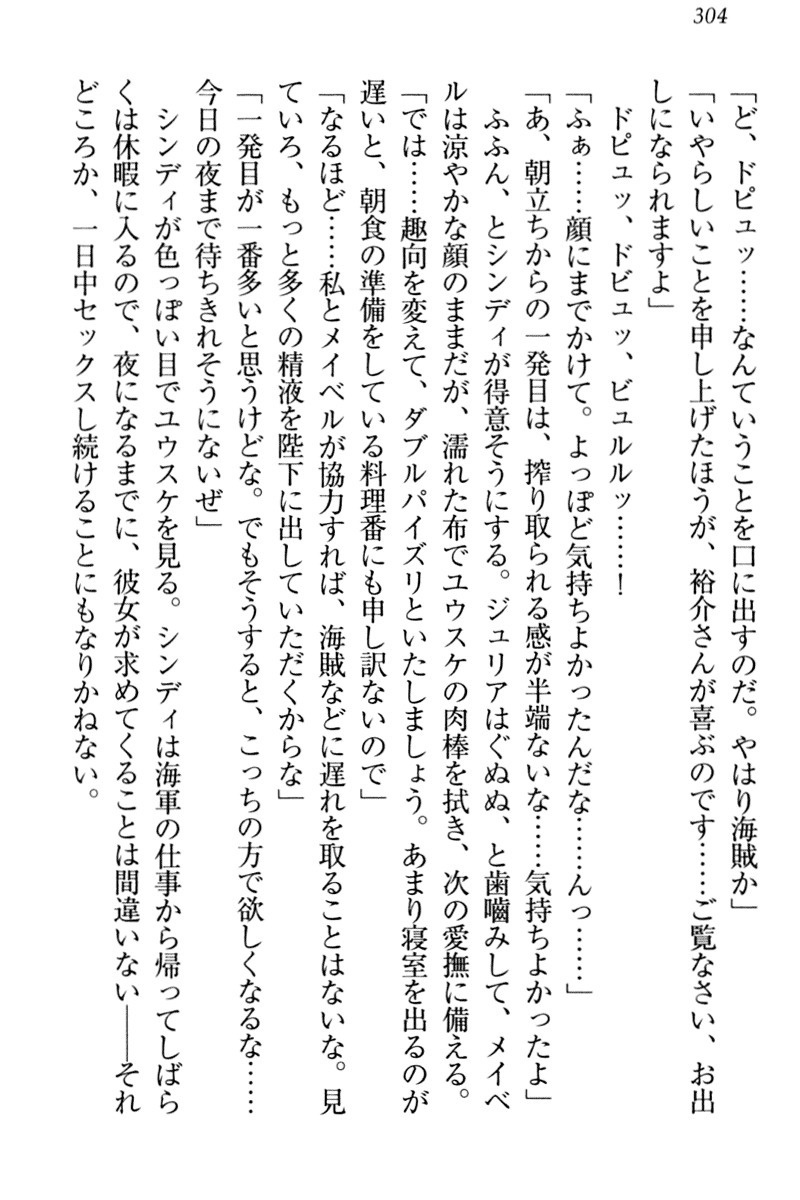 304
「ど、ドピュッ……なんていうことを口に出すのだ。やはり海賊か」
「いやらしいことを申し上げたほうが、裕介さんが喜ぶのです……ご覧なさい、お出
しになられますよ」
ドピュッ、ドビュッ、ビュルルッ……！
「ふぁ……顔にまでかけて。よっぽど気持ちよかったんだな……んっ……」
「あ、朝立ちからの一発目は、搾り取られる感が半端ないな……気持ちよかったよ」
ふふん、とシンディが得意そうにする。ジュリアはぐぬぬ、と歯嚙みして、メイベ
ルは涼やかな顔のままだが、濡れた布でユウスケの肉棒を拭き、次の愛撫に備える。
「では……趣向を変えて、ダブルパイズリといたしましょう。あまり寝室を出るのが
遅いと、朝食の準備をしている料理番にも申し訳ないので」
「なるほど……私とメイベルが協力すれば、海賊などに遅れを取ることはないな。見
ていろ、もっと多くの精液を陛下に出していただくからな」
「一発目が一番多いと思うけどな。でもそうすると、こっちの方で欲しくなるな……
今日の夜まで待ちきれそうにないぜ」
シンディが色っぽい目でユウスケを見る。シンディは海軍の仕事から帰ってしばら
くは休暇に入るので、夜になるまでに、彼女が求めてくることは間違いない――それ
どころか、一日中セックスし続けることにもなりかねない。